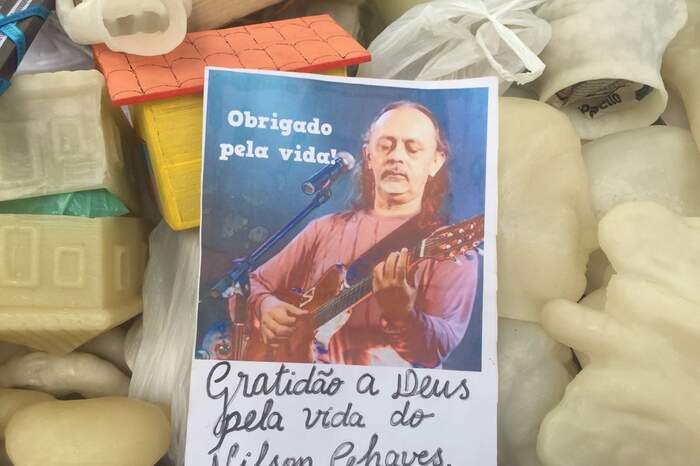 Obrigado
pela vida!
Gratidão a Deus
pela vida do
Nilson Chaves.